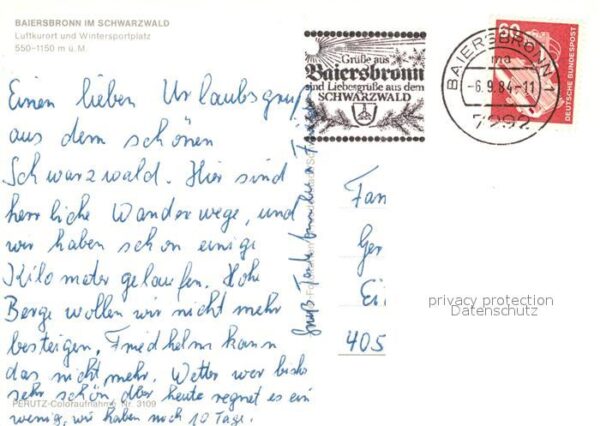 BAIERSBRONN IM SCHWARZWALD
Luftkurort und Wintersportplatz
550-1150 m ü.M
Einen lieben Urlaubsgruß
aus dem schönen
Schwarzwald. Hier sind
herrliche Wanderwege, und
wir haben schon einige
Kilometer gelaufen. Hohe
Berge wollen wir nicht mehr
besteigen, Friedhelm kann
das nicht mehr. Wetter war bisher
sehr schön, aber heute regnet es ein
wenig, wir haben noch 10 Tage.
PERUTZ-Coloraufnahme Nr. 3109
Gruß Tante
Grüße aus
Baiersbronn
und Liebesgrüße aus dem
SCHWARZWALD
BAIERSBRONN 1
-6.9.84-11
7292
60
DEUTSCHE BUNDESPOST
Fam
Ger
Ei
405
privacy protection
Datenschutz